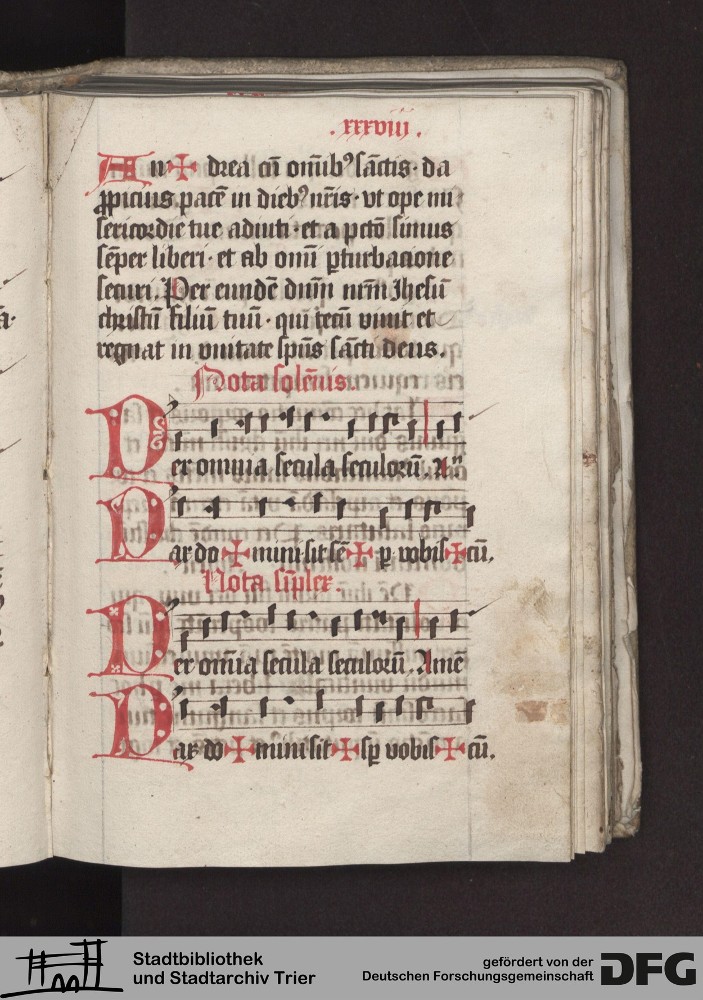 . xxxviii .
An ✠ drea cū om̄ibꝰ sāctis · da
ꝓpicius pacē in diebꝰ nr̄is · vt ope mi
sericordie tue adiuti · et a pctō simus
sēper liberi · et ab om̄i ꝑturbacione
securi. Per eundē dūm nr̄m Jhesū
christū filiū tuū · qui tecū viuit et
regnat in vnitate sp̄us sācti deus.
Nota solēnis.
Per omnia secula seculorū. A
Pax do ✠ mini sit sē ✠ ꝑ vobis ✠ cū.
Nota sīplex.
Per om̄ia secula seculorū. Amē
Pax do ✠ mini sit ✠ sꝑ vobis ✠ cū.
Stadtbibliothek
und Stadtarchiv Trier
gefördert von der
Deutschen Forschungsgemeinschaft
DFG